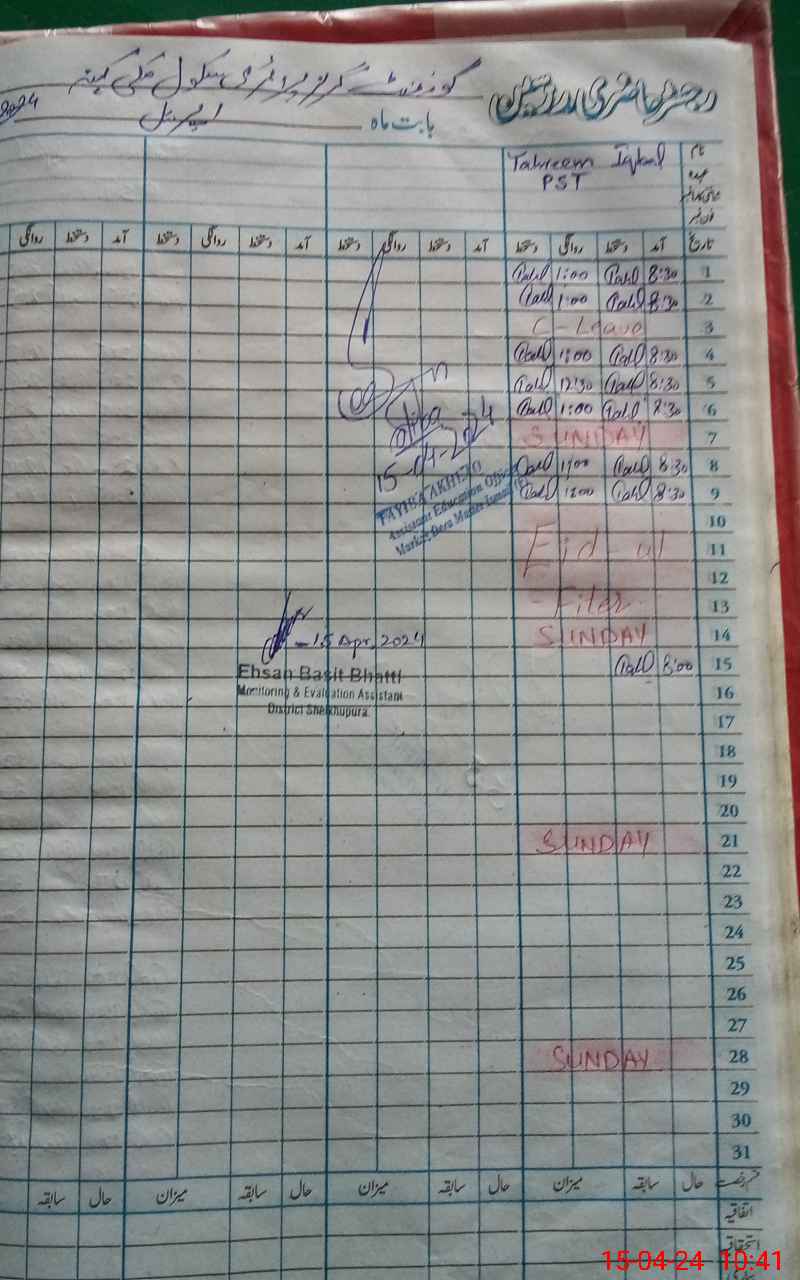 رجسٹر حاضری مدرسین گورنمنٹ گرلز پرائمری سکول
بابت ماہ اپریل 2024
نام Tahreem Iqbal
عہدہ PST
تاریخ آمد دستخط روانگی دستخط آمد دستخط روانگی دستخط آمد دستخط روانگی دستخط آمد دستخط روانگی
1 8:30 1:00
2 8:30 1:00
3 C-Leave
4 8:30 1:00
5 8:30 12:30
6 8:30 1:00
7 SUNDAY
8 8:30 1:00
9 8:30 1:00
10
11 Eid-ul
12
13 -Fiter
14 SUNDAY
15 8:00
16
17
18
19
20
21 SUNDAY
22
23
24
25
26
27
28 SUNDAY
29
30
31
15-04-2024
TAYIBA AKHTAR
Assistant Education Officer
Markaz Dera
-15 Apr, 2024
Ehsan Basit Bhatti
Monitoring & Evaluation Assistant
District Sheikhupura
قسم رخصت حال سابقہ میزان حال سابقہ میزان حال سابقہ میزان حال سابقہ
اتفاقیہ
استحقاقی
15-04-24 10:41